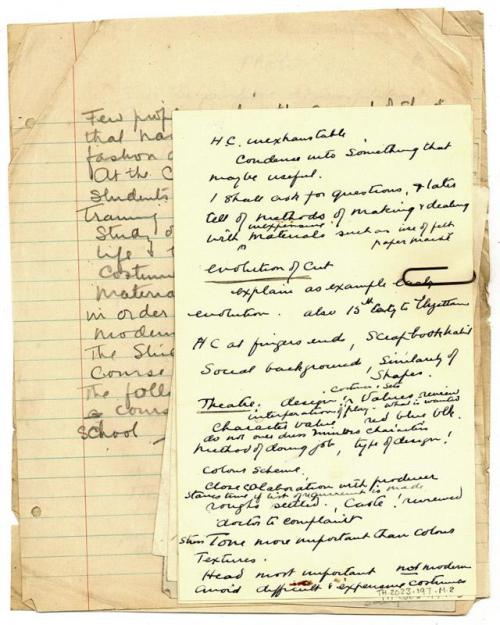 H.C. inexhaustable.
Condense into something that
maybe useful.
I shall ask for questions, & later
tell of methods of making & dealing
inexpensive
with materials such as use of felt
paper
evolution of Cut
explain as example
evolution. also 15th Centy to Elizabethan
HC at fingers ends, Scrapbook habit
Social background Similarity of
Shapes.
Costume & sets
Theatre. design & values. review
interpretation of play. What is wanted
Character value red blue blk.
do not over dress minor characters
method of doing job, type of design!
Colour Scheme.
Close colaboration with producer
Saves time if list of requirement is made
roughs settled. Caste!
doctor to complaint
Stress Tone more important than colour
Textures.
Head most important not modern
avoid difficult & expensive costumes
TH.2023.197.M.2
Few
that
fashion
At the C
Students
Training
Study of
Life &
Costume
Materia
in order
modern
The
Course
The foll
a cours
School